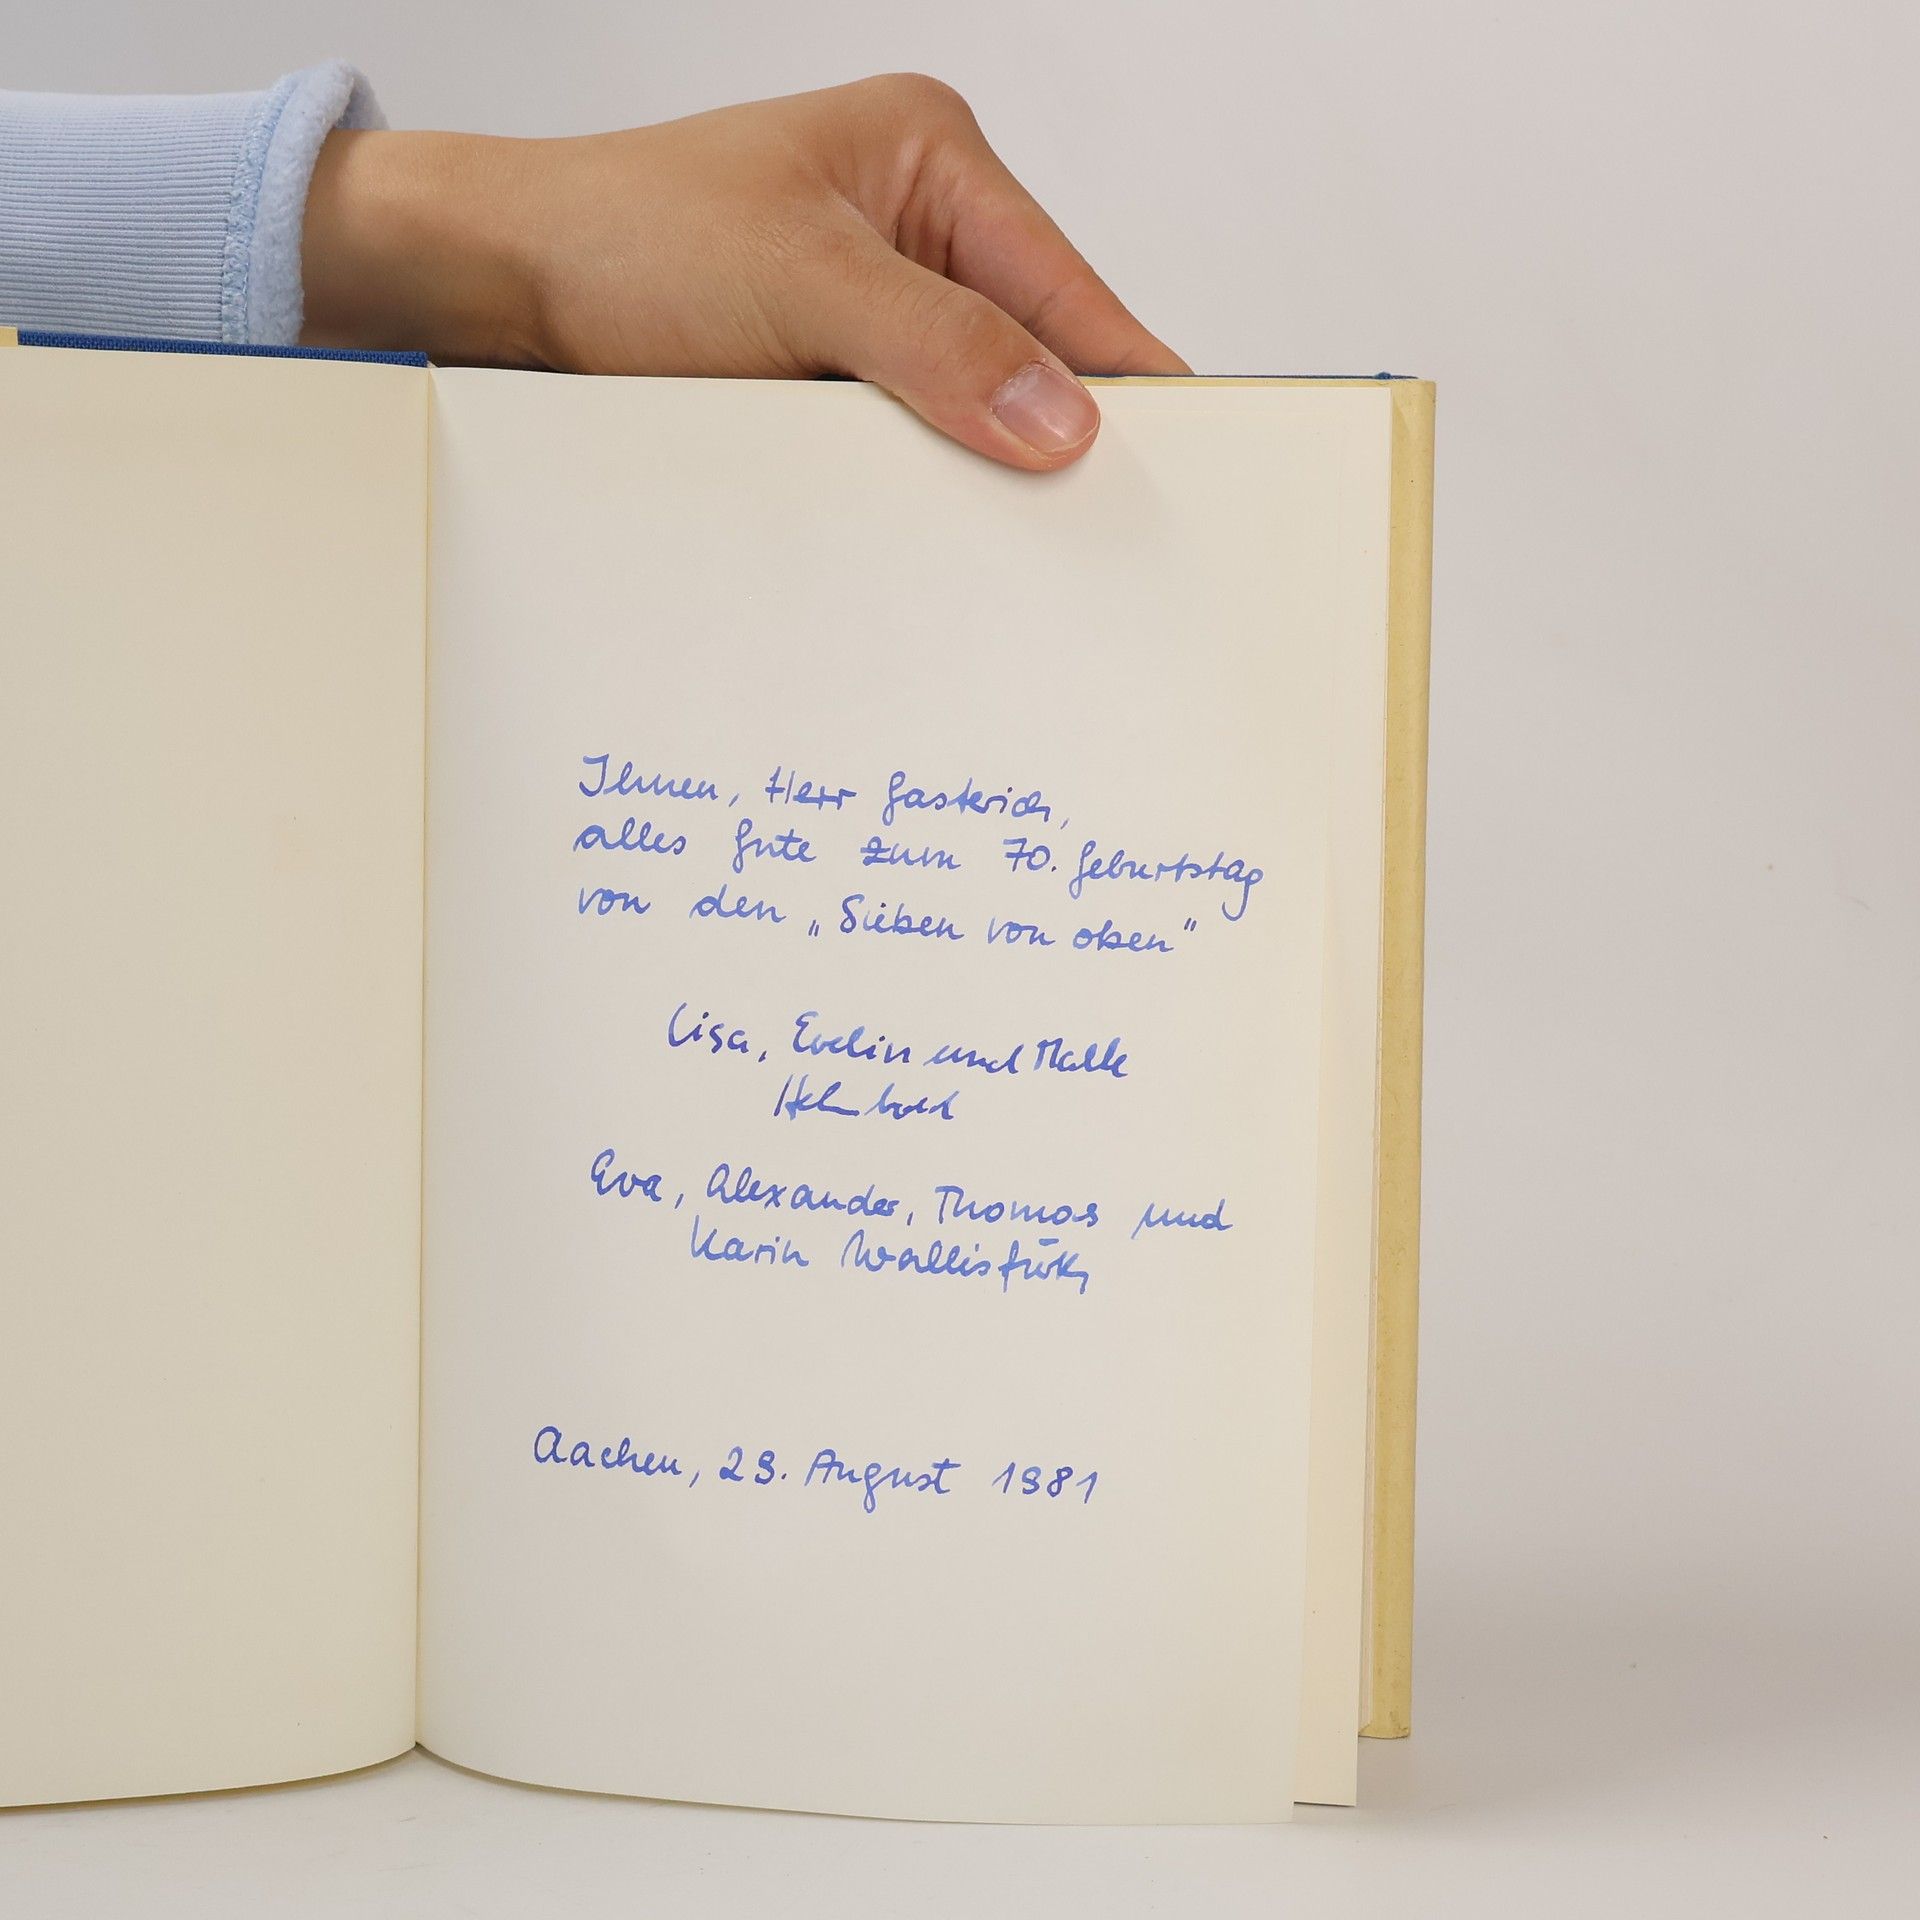 Ihnen, Herr Gasterich,
alles Gute zum 70. Geburtstag
von den „Sieben von oben"
Lisa, Evelin und Malle
Eva, Alexander, Thomas und
Karin Wallisfurth
Aachen, 29. August 1981